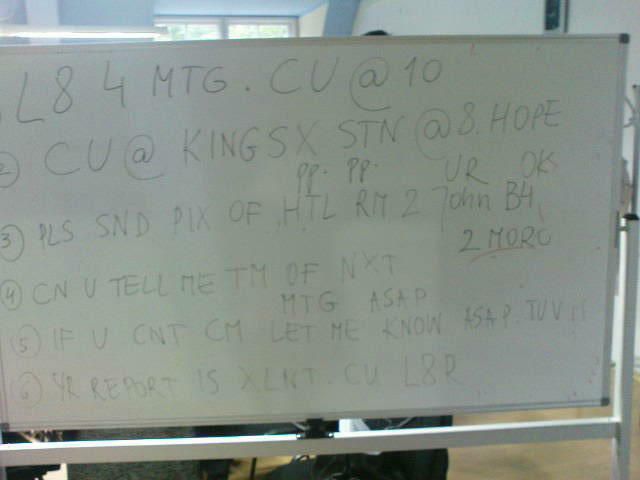 L8 4 MTG. CU @ 10
2 CU @ KINGSX STN @ 8. HOPE
UR OK
3 PLS SND PIX OF HTL RM 2 John B4
2 MORO
4 CN U TELL ME TM OF NXT
MTG ASAP
5 IF U CNT CM LET ME KNOW ASAP. TUV !!
6 YR REPORT IS XLNT. CU L8R